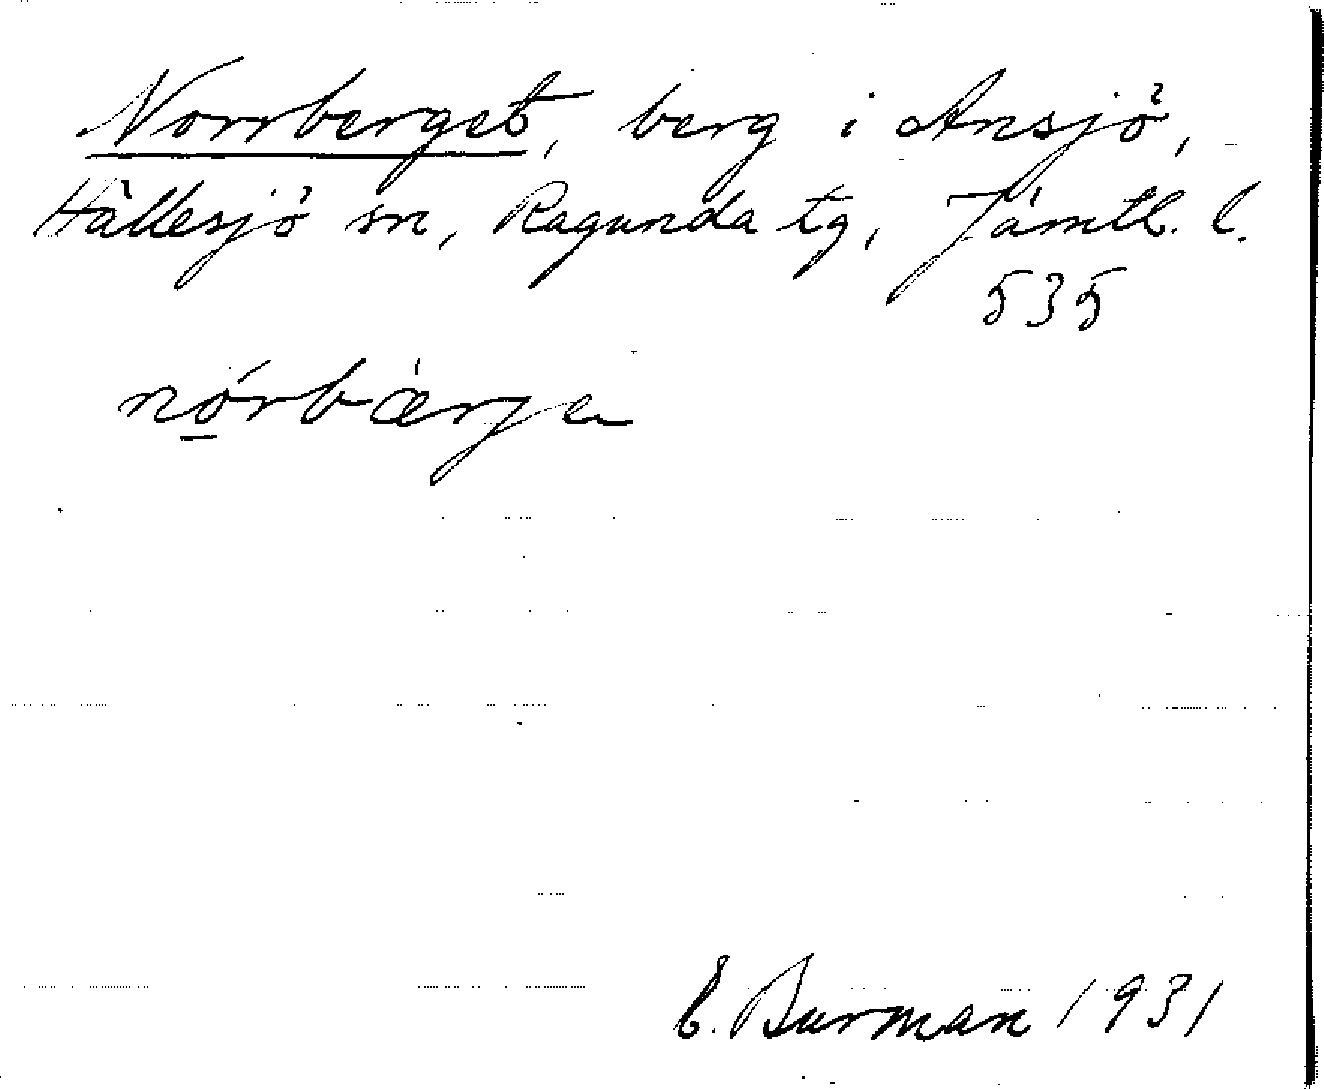 Norrberget, berg i Ansjö,
Hällesjö sn, Ragunda tg, Jämtl. l.
535
nó̲rbærje
E. Burman 1931